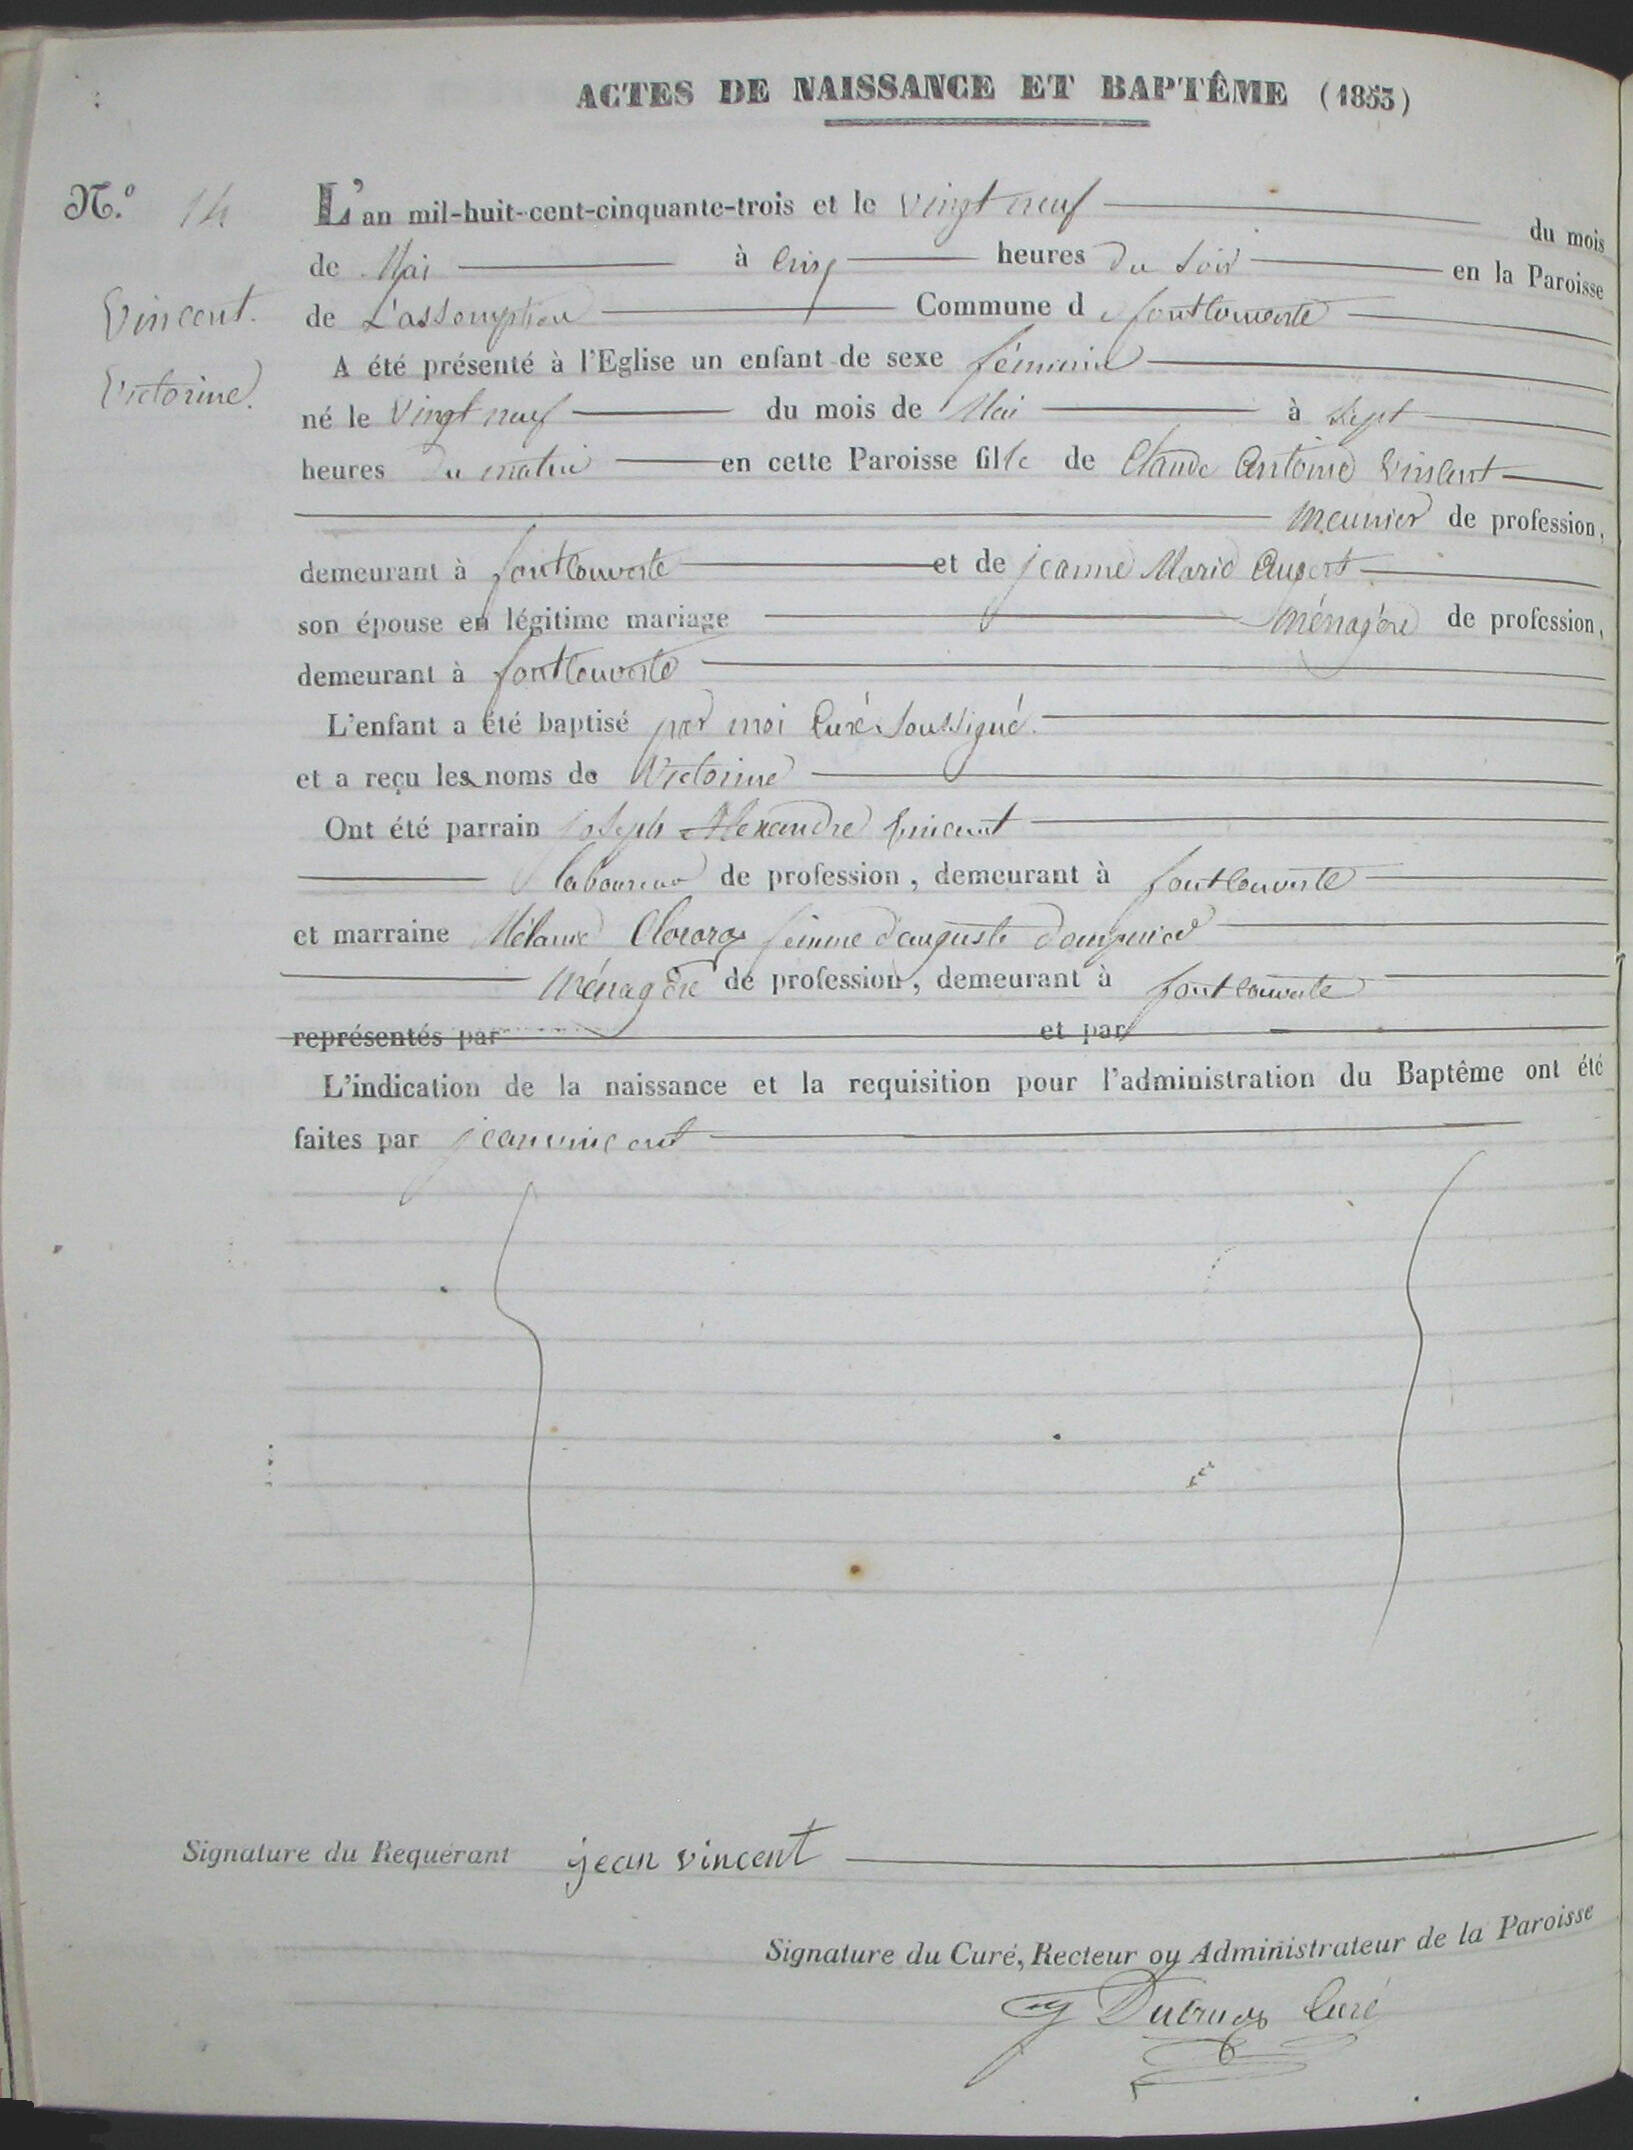 ACTES DE NAISSANCE ET BAPTÊME (1853)
N.o 14
L'an mil-huit-cent-cinquante-trois et le vingt neuf du mois
de Mai à cinq heures du soir en la Paroisse
Vincent.
de L'assomption Commune de fontcouverte
A été présenté à l'Eglise un enfant de sexe féminin
Victorine.
né le vingt neuf du mois de Mai à sept
heures du matin en cette Paroisse fille de Claude Antoine Vincent
meunier de profession,
demeurant à fontcouverte et de jeanne Marie
son épouse en légitime mariage ménagère de profession,
demeurant à fontcouverte
L'enfant a été baptisé par moi Curé soussigné.
et a reçu les noms de Victorine
Ont été parrain joseph Alexandre Vincent
laboureur de profession, demeurant à fontcouverte
et marraine Mélanie femme d'auguste
ménagère de profession, demeurant à fontcouverte
représentés par et par
L'indication de la naissance et la requisition pour l'administration du Baptême ont été
faites par jean vincent
Signature du Requérant jean vincent
Signature du Curé, Recteur ou Administrateur de la Paroisse
Curé